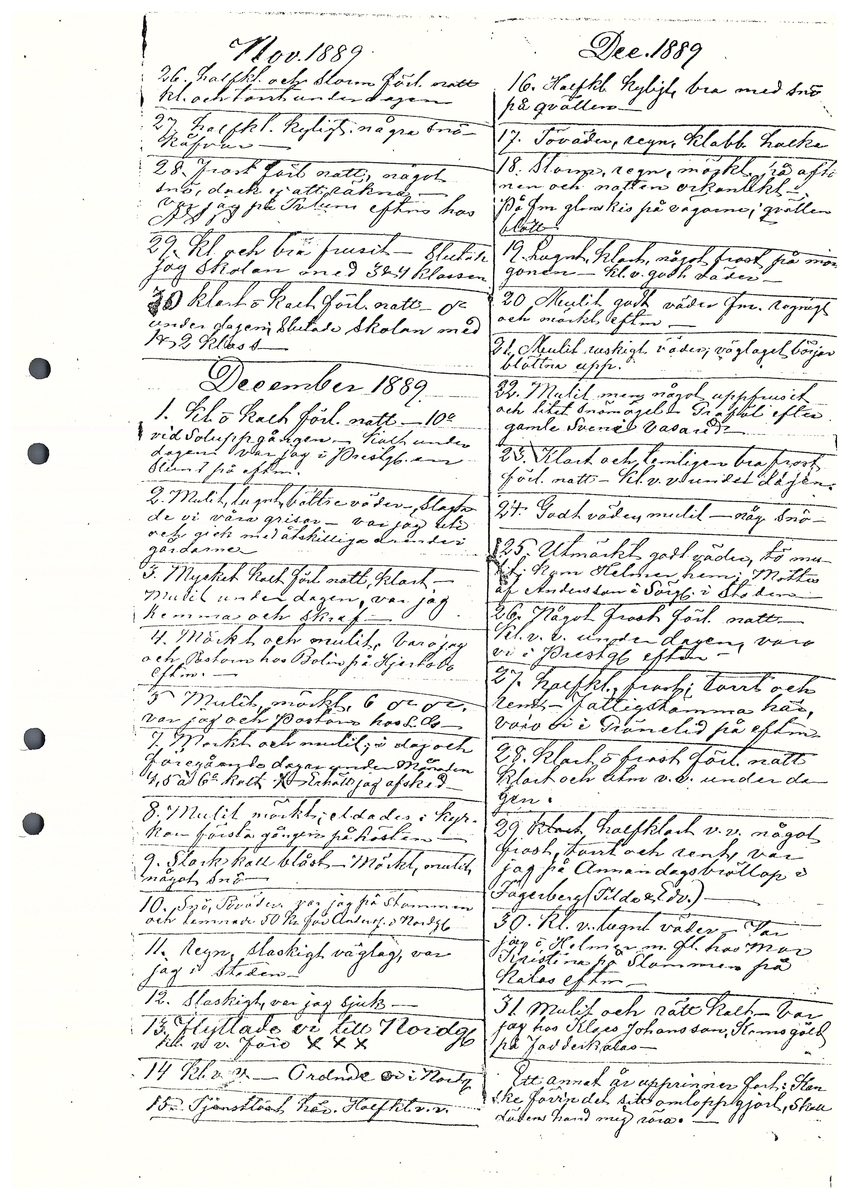 Nov. 1889
26. Halfkl. och storm förl. natt
kl. och tort under dagen
27. Halfkl. kyligt, några snö-
28. Frost förl. natt, något
snö, dock ej att räkna —
var jag på eftm hos
29. Kl. och bra frusit — Slutade
jag skolan med 3 & 4 klassen
30 Klart o kallt förl. natt —
under dagen, Slutade skolan med
1 & 2 klass —
December 1889.
1. Kl. o kallt förl. natt — 10°
vid Soluppgången — kallt under
dagen var jag i Prestg. en
stund på eftm.
2. Mulit, lugnt, bättre väder, Slagta-
de vi våra grisar — var jag ute
och gick med åtskilliga ärenden i
gårdarne
3. Mycket kallt förl. natt, klart —
Mulit under dagen, var jag
hemma och skref —
4. Mörkt och mulit, Voro jag
och Pastorn hos Bolin på
eftm. —
5 Mulit, mörkt, 6
var jag och Pastorn hos
7. Mörkt och mulit, i dag och
föregående dagar under Månaden
4, 5 à 6° kallt — Erhöll jag afsked —
8. Mulit mörkt, eldades i kyr-
kan första gången på hösten —
9. Stark kall blåst — Mörkt, mulit,
något snö —
10. Snö, Töväder var jag på Stommen
och lemnade 50 Kr för i Nordg
11. Regn, slaskigt väglag, var
jag i Staden —
12. Slaskigt, var jag sjuk —
13. Flyttade vi till Nordg
kl. v. v. X X X
14 Kl. v. v. — Ordnde vi i Nordg
15. Tjenstlöst här. Halfkl. v. v.
Dec. 1889
16. Halfkl. kyligt, bra med snö
på qvällen —
17. Töväder, regn, klabb halka
18. Storm, regn, mörkt, på afto
nen och natten orkanlikt —
På fm glanskis på vägarne, i qvällen
blött
19. Lugnt, klart, något frost på mor
gonen — kl. v. godt väder —
20 Mulit godt väder fm. regnigt
och mörkt eftm —
21. Mulit ruskigt väder, väglaget börjar
blötna upp.
22. Mulit men något uppfrusit
och litet snömögel — Graföl efter
gamle Sven i Vasared
23. Klart och temligen bra frost
förl. natt — kl. v. v. under dagen.
24. Godt väder, mulit — någ. snö —
25. Utmärkt godt väder, tö mu-
lit, kom Helmer hem,
af Andersson i i Staden —
26. Något frost förl. natt —
Kl. v. v. under dagen, voro
vi i Prestg eftm —
27. Halfkl., frost, torrt och
rent — Fattigstämma här,
voro vi i Gränelid på eftm
28. Klart o frost förl. natt
klart och utm v. v. under da-
gen.
29 Klart, halfklart v. v. något
frost, torrt och rent, var
jag på Annandagsbröllop i
Fagerberg (Tilda & Edv.) —
30. Kl. v. lugnt väder — Var
jag o Helmer m. fl. hos Mor
Kristina på Stommen på
kalas eftm —
31. Mulit och rätt kallt — Var
jag hos Klaes Johansson,
på —
Ett annat år upprinner fort: Kan
ske förrn det sitt omlopp gjort, Skall
dödens hand mig röra. —